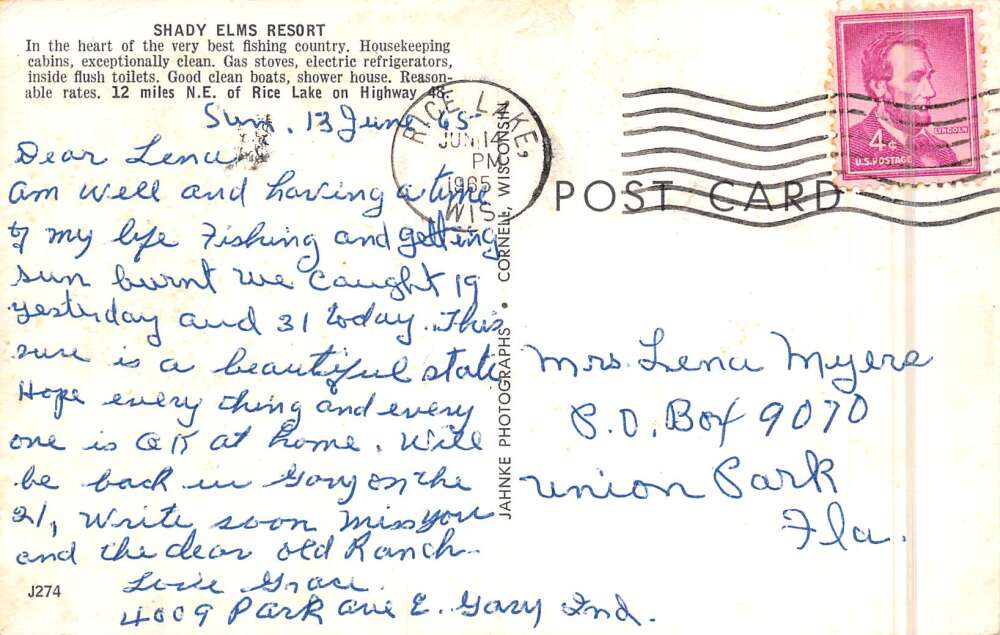 SHADY ELMS RESORT
In the heart of the very best fishing country. Housekeeping
cabins, exceptionally clean. Gas stoves, electric refrigerators,
inside flush toilets. Good clean boats, shower house. Reason-
able rates. 12 miles N.E. of Rice Lake on Highway 48.
Sun, 13 June 65
Dear Lena
am well and having a time
of my life Fishing and getting
sun burnt we caught 19
yesterday and 31 today. This
sure is a beautiful state
Hope every thing and every
one is OK at home. Will
be back in Gary on the
21, Write soon Miss you
and the dear old Ranch.
Love Grace
4009 Park ave E. Gary Ind.
J274
RICE LAKE,
JUN 14
PM
1965
WIS.
JAHNKE PHOTOGRAPHS • CORNELL, WISCONSIN
POST CARD
4¢
LINCOLN
U.S. POSTAGE
Mrs. Lena Myers
P.O. Box 9070
Union Park
Fla.